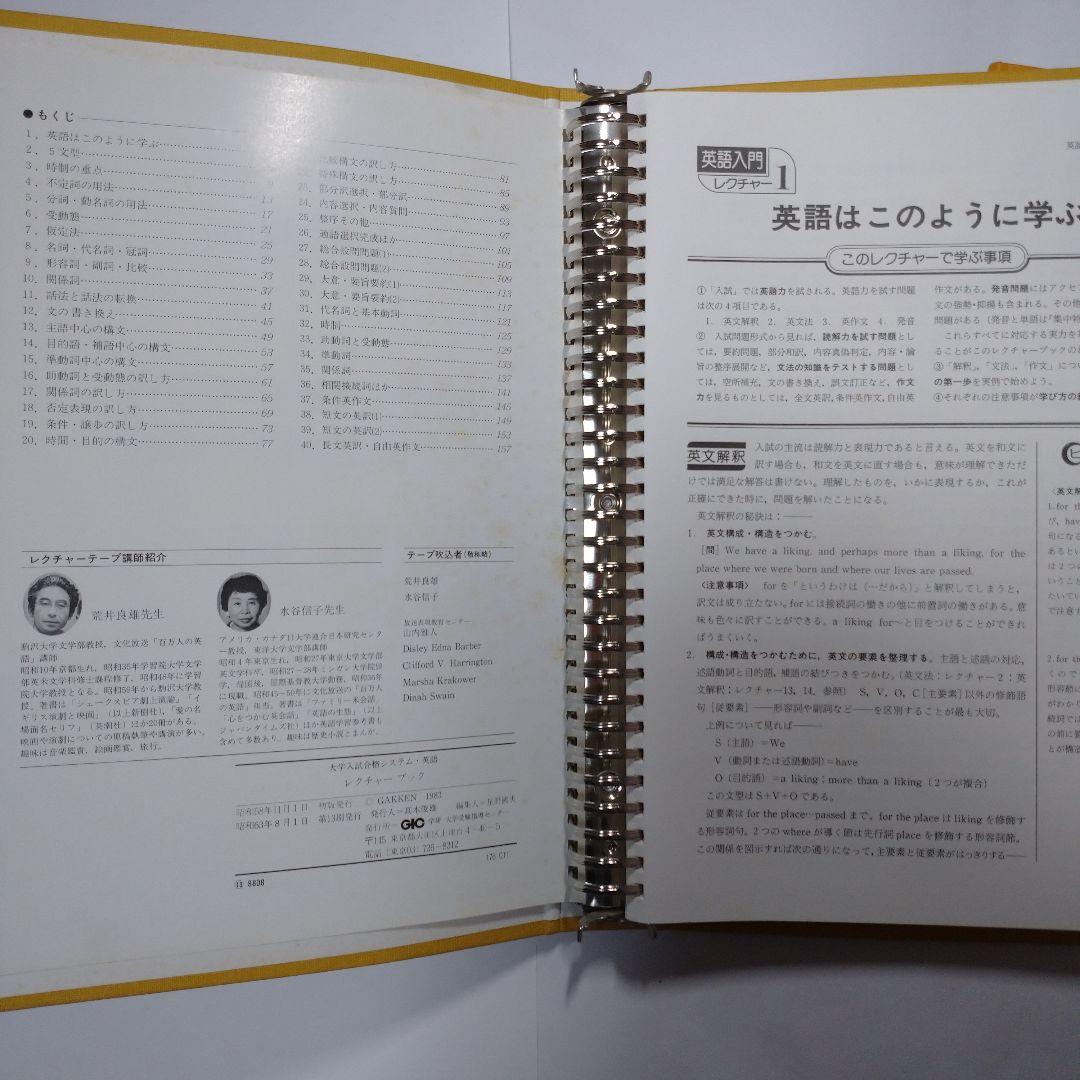 ●もくじ
1. 英語はこのように学ぶ
2. 5文型
3. 時制の重点
4. 不定詞の用法 13
5. 分詞・動名詞の用法 17
6. 受動態 21
7. 仮定法 25
8. 名詞・代名詞・冠詞 29
9. 形容詞・副詞・比較 33
10. 関係詞 37
11. 話法と話法の転換 41
12. 文の書き換え 45
13. 主語中心の構文 49
14. 目的語・補語中心の構文 53
15. 準動詞中心の構文 57
16. 助動詞と受動態の訳し方 61
17. 関係詞の訳し方 65
18. 否定表現の訳し方 69
19. 条件・譲歩の訳し方 73
20. 時間・目的の構文 77
構文の訳し方 81
特殊構文の訳し方 85
23. 部分訳選択・部分訳 89
24. 内容選択・内容質問 93
25. 整序その他 97
26. 適語選択完成ほか 101
27. 総合設問問題(1) 105
28. 総合設問問題(2) 109
29. 大意・要旨要約(1) 113
30. 大意・要旨要約(2) 117
31. 代名詞と基本動詞 121
32. 時制 125
33. 助動詞と受動態 129
34. 準動詞 133
35. 関係詞 137
36. 相関接続詞ほか 141
37. 条件作英文 145
38. 短文の英訳(1) 149
39. 短文の英訳(2) 153
40. 長文英訳・自由英作文 157
レクチャーテープ講師紹介
荒井良雄先生
駒沢大学文学部教授、文化放送「百万人の英
語」講師
昭和10年京都生れ、昭和35年学習院大学文学
部英米文学科修士課程修了、昭和48年に学習
院大学教授となる。昭和59年から駒沢大学教
授。著書は「シェークスピア劇上演論」「イ
ギリス演劇と映画」(以上新樹社)、「愛の名
場面名セリフ」(英潮社)ほか20冊がある。
映画や演劇についての原稿執筆や講演が多い。
趣味は音楽鑑賞、絵画鑑賞、旅行。
水谷信子先生
アメリカ・カナダ11大学連合日本研究センタ
ー教授、東洋大学文学部講師
昭和4年東京生れ、昭和27年東京大学文学部
英文学科卒。昭和27〜28年ミシガン大学院留
学、帰国後、国際基督教大学勤務、昭和36年
に現職。昭和45〜50年に文化放送の「百万人
の英語」担当。著書は「ファミリー英会話」
「心をつかむ英会話」「英語の生態」(以上
ジャパンタイムズ社)ほか英語学習参考書も
含めて多数あり。趣味は歴史小説とまんが。
テープ吹込者(敬称略)
荒井良雄
水谷信子
放送表現教育センター
山内雅人
Disley Edna Barber
Clifford V. Harrington
Marsha Krakower
Dinah Swain
大学入試合格システム・英語
レクチャー ブック
昭和58年11月1日 初版発行 © GAKKEN 1983
昭和63年8月1日 第13刷発行 発行人=高木俊雄 編集人=星野國夫
発行所 GIC 学研 大学受験指導センター
〒145 東京都大田区上池台4-40-5
電話(東京03)726-8212
⑬ 8808
英語入門
レクチャー1
英語はこのように学ぶ
このレクチャーで学ぶ事項
①「入試」では英語力を試される。英語力を試す問題
は次の4項目である。
1. 英文解釈 2. 英文法 3. 英作文 4. 発音
② 入試問題形式から見れば、読解力を試す問題とし
ては、要約問題、部分和訳、内容真偽判定、内容・論
旨の整序展開など、文法の知識をテストする問題とし
ては、空所補充、文の書き換え、誤文訂正など、作文
力を見るものとしては、全文英訳、条件英作文、自由英
作文がある。発音問題にはアクセ
文の強勢・抑揚も含まれる。その他
問題がある(発音と単語は「集中特
これらすべてに対応する実力を
ることがこのレクチャーブックの
③「解釈」、「文法」、「作文」につ
の第一歩を実例で始めよう。
④それぞれの注意事項が学び方の
英文解釈
入試の主流は読解力と表現力であると言える。英文を和文に
訳す場合も、和文を英文に直す場合も、意味が理解できただ
けでは満足な解答は書けない。理解したものを、いかに表現するか、これが
正確にできた時に、問題を解いたことになる。
英文解釈の秘訣は:――
1. 英文構成・構造をつかむ。
[問] We have a liking, and perhaps more than a liking, for the
place where we were born and where our lives are passed.
〈注意事項〉 forを「というわけは(…だから)」と解釈してしまうと、
訳文は成り立たない。forには接続詞の働きの他に前置詞の働きがある。意
味も色々に訳すことができる。a liking for〜と目をつけることができれ
ばうまくいく。
2. 構成・構造をつかむために、英文の要素を整理する。主語と述語の対応、
述語動詞と目的語、補語の結びつきをつかむ。(英文法:レクチャー2;英
文解釈:レクチャー13, 14, 参照) S, V, O, C[主要素]以外の修飾語
句[従要素]――形容詞や副詞など――を区別することが最も大切。
上例について見れば――
S(主語)=We
V(動詞または述語動詞)=have
O(目的語)=a liking; more than a liking(2つが複合)
この文型はS+V+Oである。
従要素はfor the place…passedまで。for the placeはlikingを修飾す
る形容詞句。2つのwhereが導く節は先行詞placeを修飾する形容詞節。
この関係を図示すれば次の通りになって、主要素と従要素がはっきりする――
〈英文解
1.for th
び、hav
句になる
あるとい
は2つに